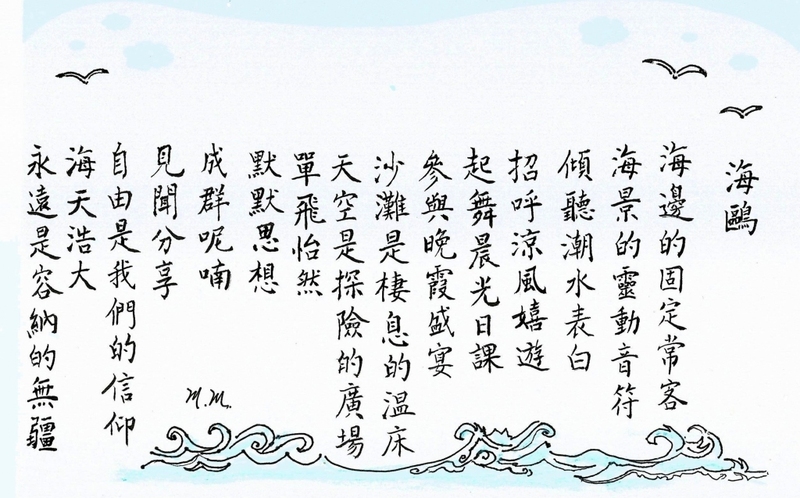 海鷗
海邊的固定常客
海景的靈動音符
傾聽潮水表白
招呼涼風嬉遊
起舞晨光日課
參與晚霞盛宴
沙灘是棲息的溫床
天空是探險的廣場
單飛怡然
默默思想
成群呢喃
見聞分享
自由是我們的信仰
海天浩大
永遠是容納的無疆
M.M.